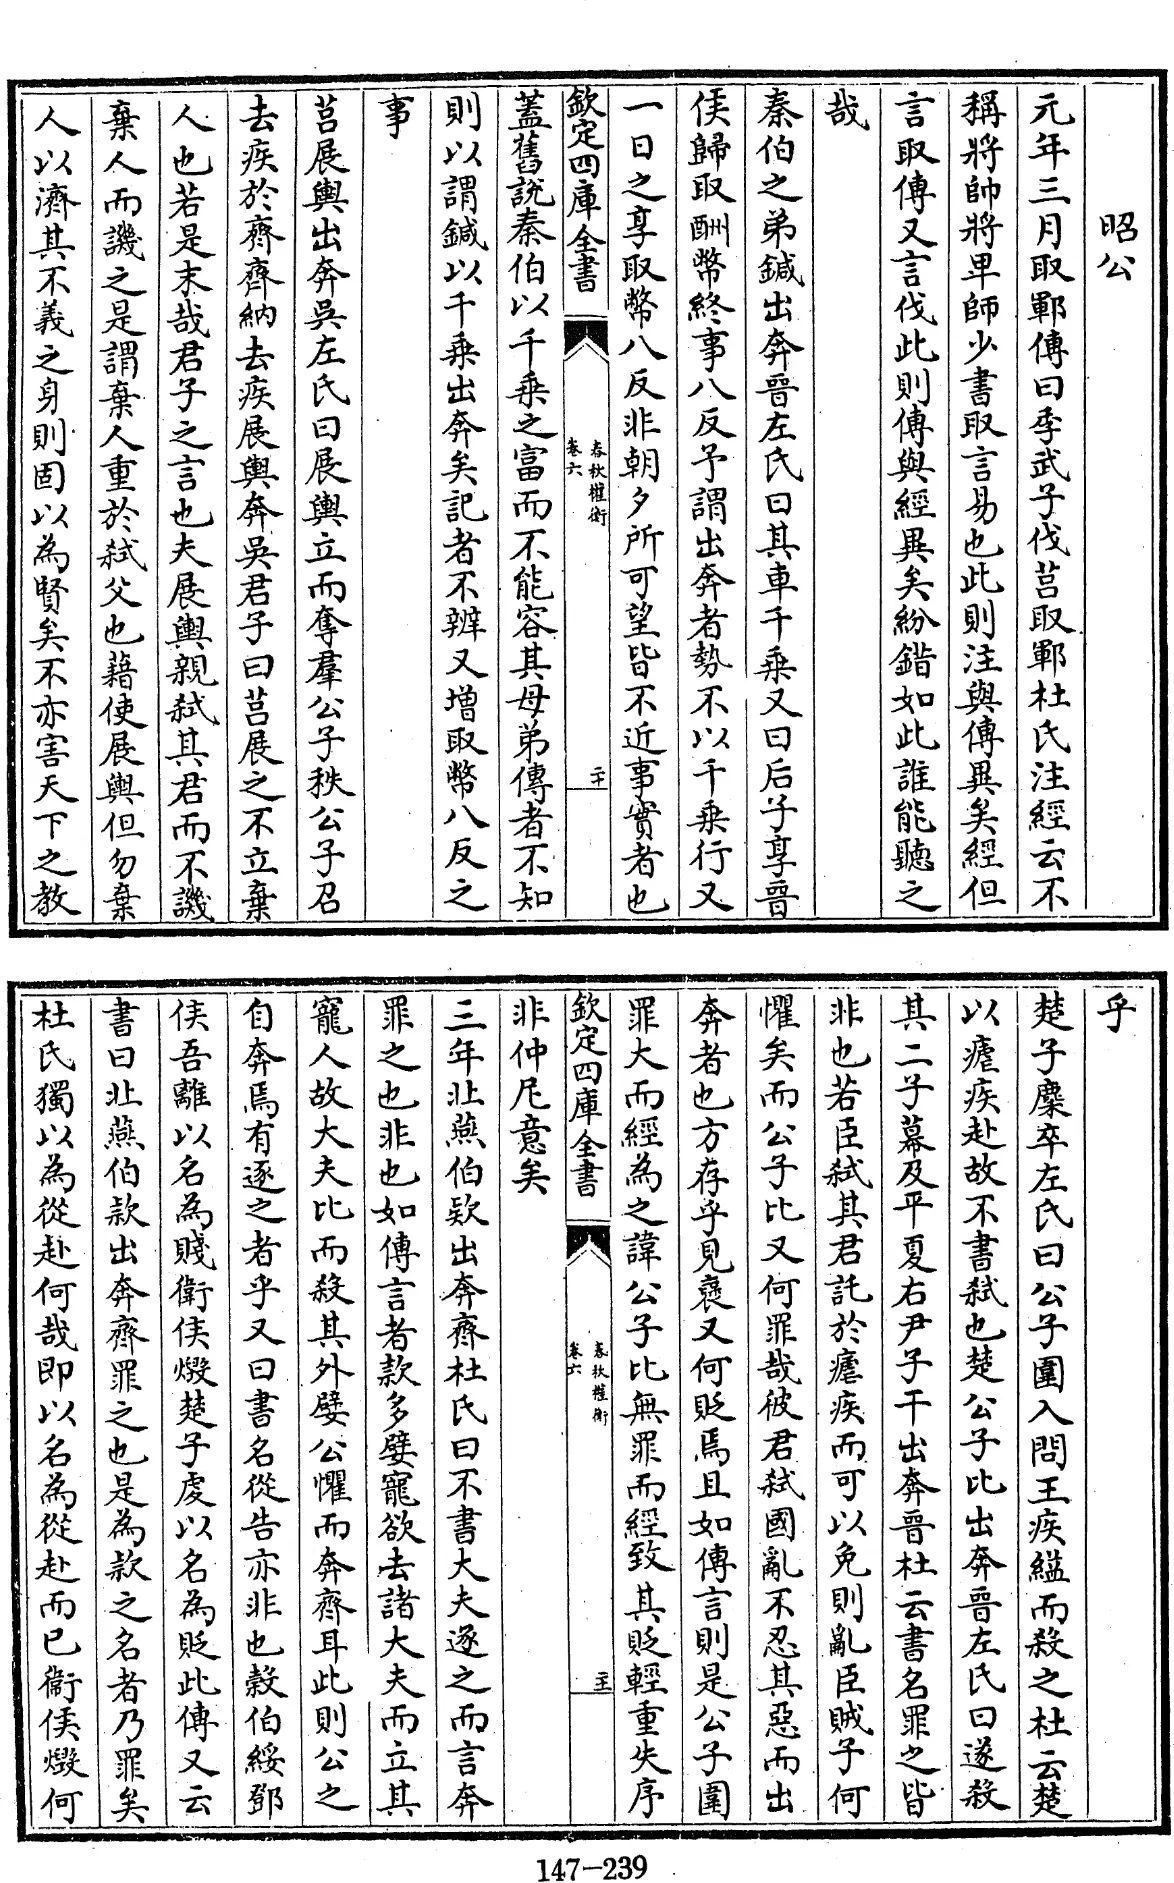 昭公
元年三月取鄆傳曰季武子伐莒取鄆杜氏注經云不
稱將帥將卑師少書取言易也此則注與傳異矣經但
言取傳又言伐此則傳與經異矣紛錯如此誰能聽之
哉
秦伯之弟鍼出奔晉左氏曰其車千乘又曰后子享晉
侯歸取酬幣終事八反予謂出奔者勢不以千乘行又
一日之享取幣八反非朝夕所可望皆不近事實者也
欽定四庫全書
春秋權衡
卷六
二十
蓋舊說秦伯以千乘之富而不能容其母弟傳者不知
則以謂鍼以千乘出奔矣記者不辨又增取幣八反之
事
莒展輿出奔吳左氏曰展輿立而奪羣公子秩公子召
去疾於齊齊納去疾展輿奔吳君子曰莒展之不立棄
人也若是末哉君子之言也夫展輿親弑其君而不譏
棄人而譏之是謂棄人重於弑父也藉使展輿但勿棄
人以濟其不義之身則固以為賢矣不亦害天下之教
乎
楚子麇卒左氏曰公子圍入問王疾縊而殺之杜云楚
以瘧疾赴故不書弑也楚公子比出奔晉左氏曰遂殺
其二子幕及平夏右尹子干出奔晉杜云書名罪之皆
非也若臣弑其君託於瘧疾而可以免則亂臣賊子何
懼矣而公子比又何罪哉彼君弑國亂不忍其惡而出
奔者也方存乎見襃又何貶焉且如傳言則是公子圍
罪大而經為之諱公子比無罪而經致其貶輕重失序
欽定四庫全書
春秋權衡
卷六
二十一
非仲尼意矣
三年北燕伯款出奔齊杜氏曰不書大夫逐之而言奔
罪之也非也如傳言者款多嬖寵欲去諸大夫而立其
寵人故大夫比而殺其外嬖公懼而奔齊耳此則公之
自奔焉有逐之者乎又曰書名從告亦非也穀伯綏鄧
侯吾離以名為賤衛侯燬楚子虔以名為貶此傳又云
書曰北燕伯款出奔齊罪之也是為款之名者乃罪矣
杜氏獨以為從赴何哉即以名為從赴而已衛侯燬何
147-239